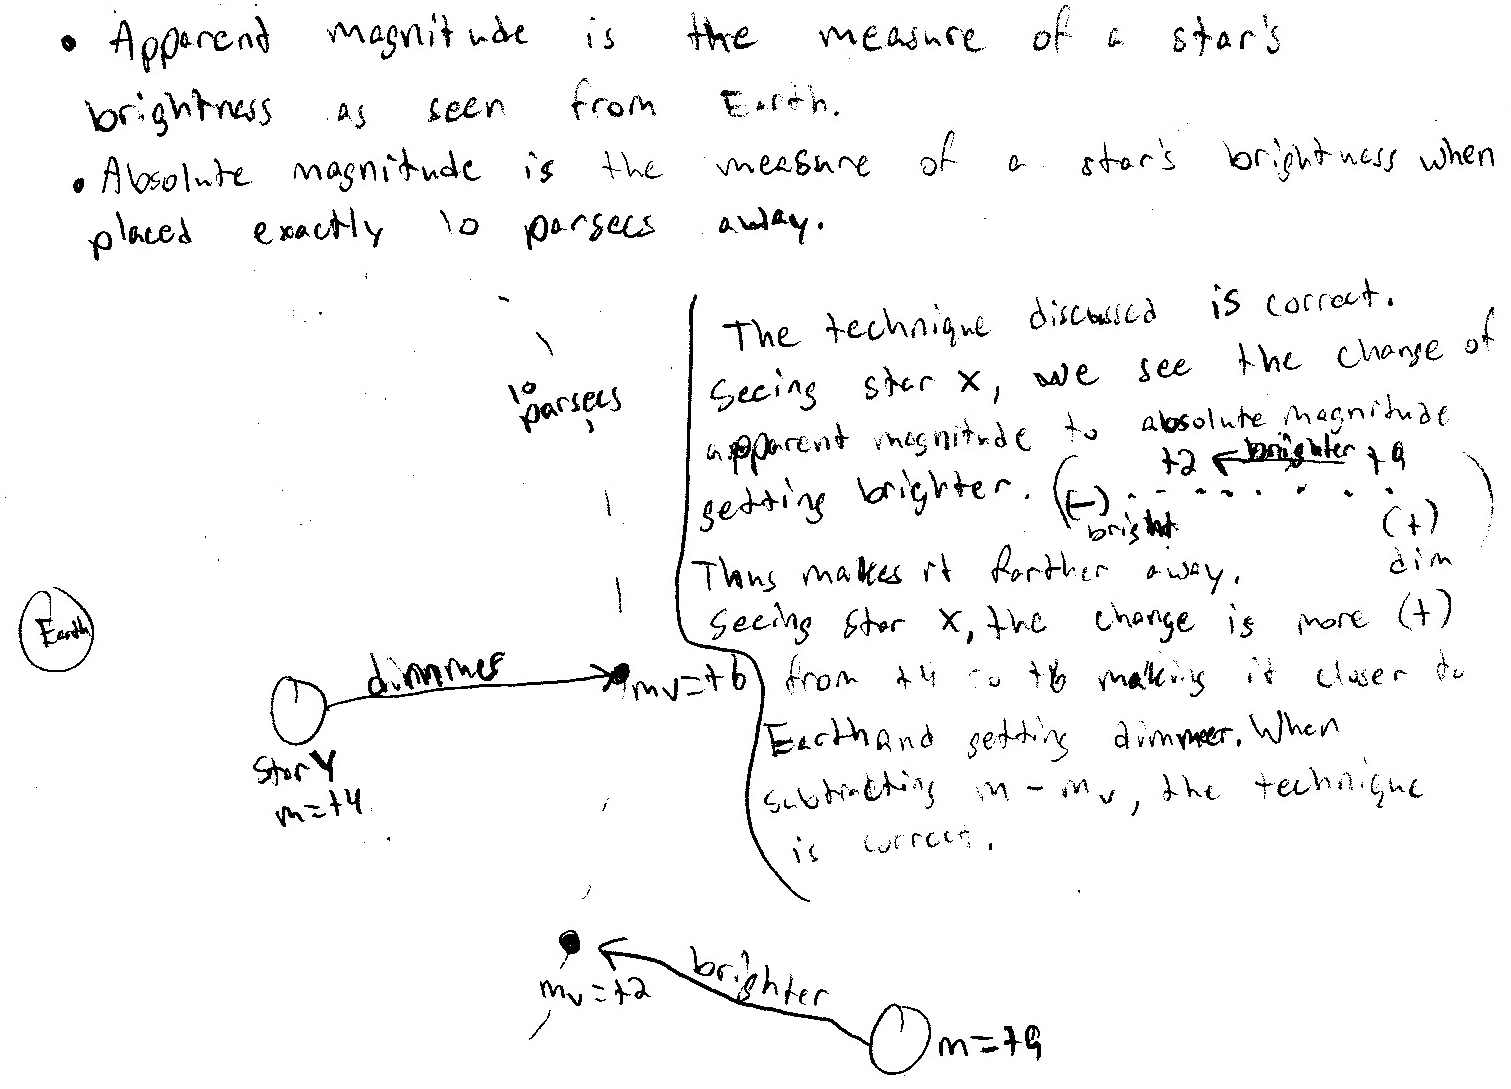 • Apparend magnitude is the measure of a star's
brightness as seen from Earth.
• Absolute magnitude is the measure of a star's brightness when
placed exactly 10 parsecs away.
10
parsecs
The technique discussed is correct.
Seeing star X, we see the change of
apparent magnitude to absolute magnitude
+2 brighter +9
getting brighter. ( (-) (+) )
bright dim
Thus makes it farther away.
Seeing star X, the change is more (+)
from +4 to +6 making it closer to
Earth and getting dimmer. When
subtracting m - mv, the technique
is correct.
Earth
dimmer
mv=+6
Star Y
m=+4
brighter
mv=+2
m=+9